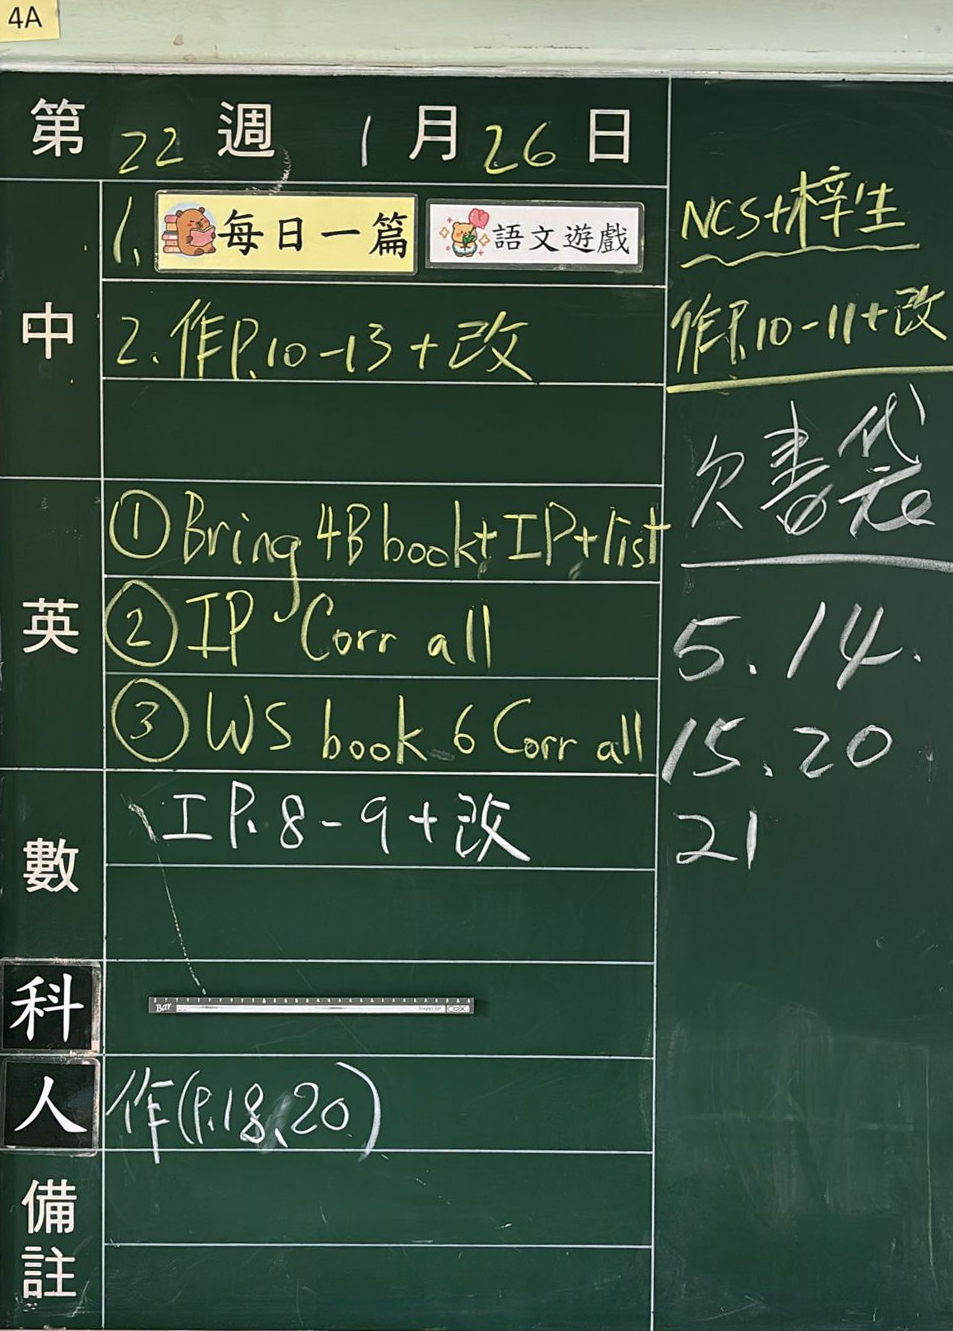 4A
第 22 週 1 月 26 日
中
1. 每日一篇 語文遊戲
2. 作P.10-13+改
英
① Bring 4B book+IP+list
② IP Corr all
③ WS book 6 Corr all
數
IP. 8-9+改
科
人
作(P.18、20)
備註
NCS+梓生
作P.10-11+改
欠書袋
5. 14.
15. 20
21